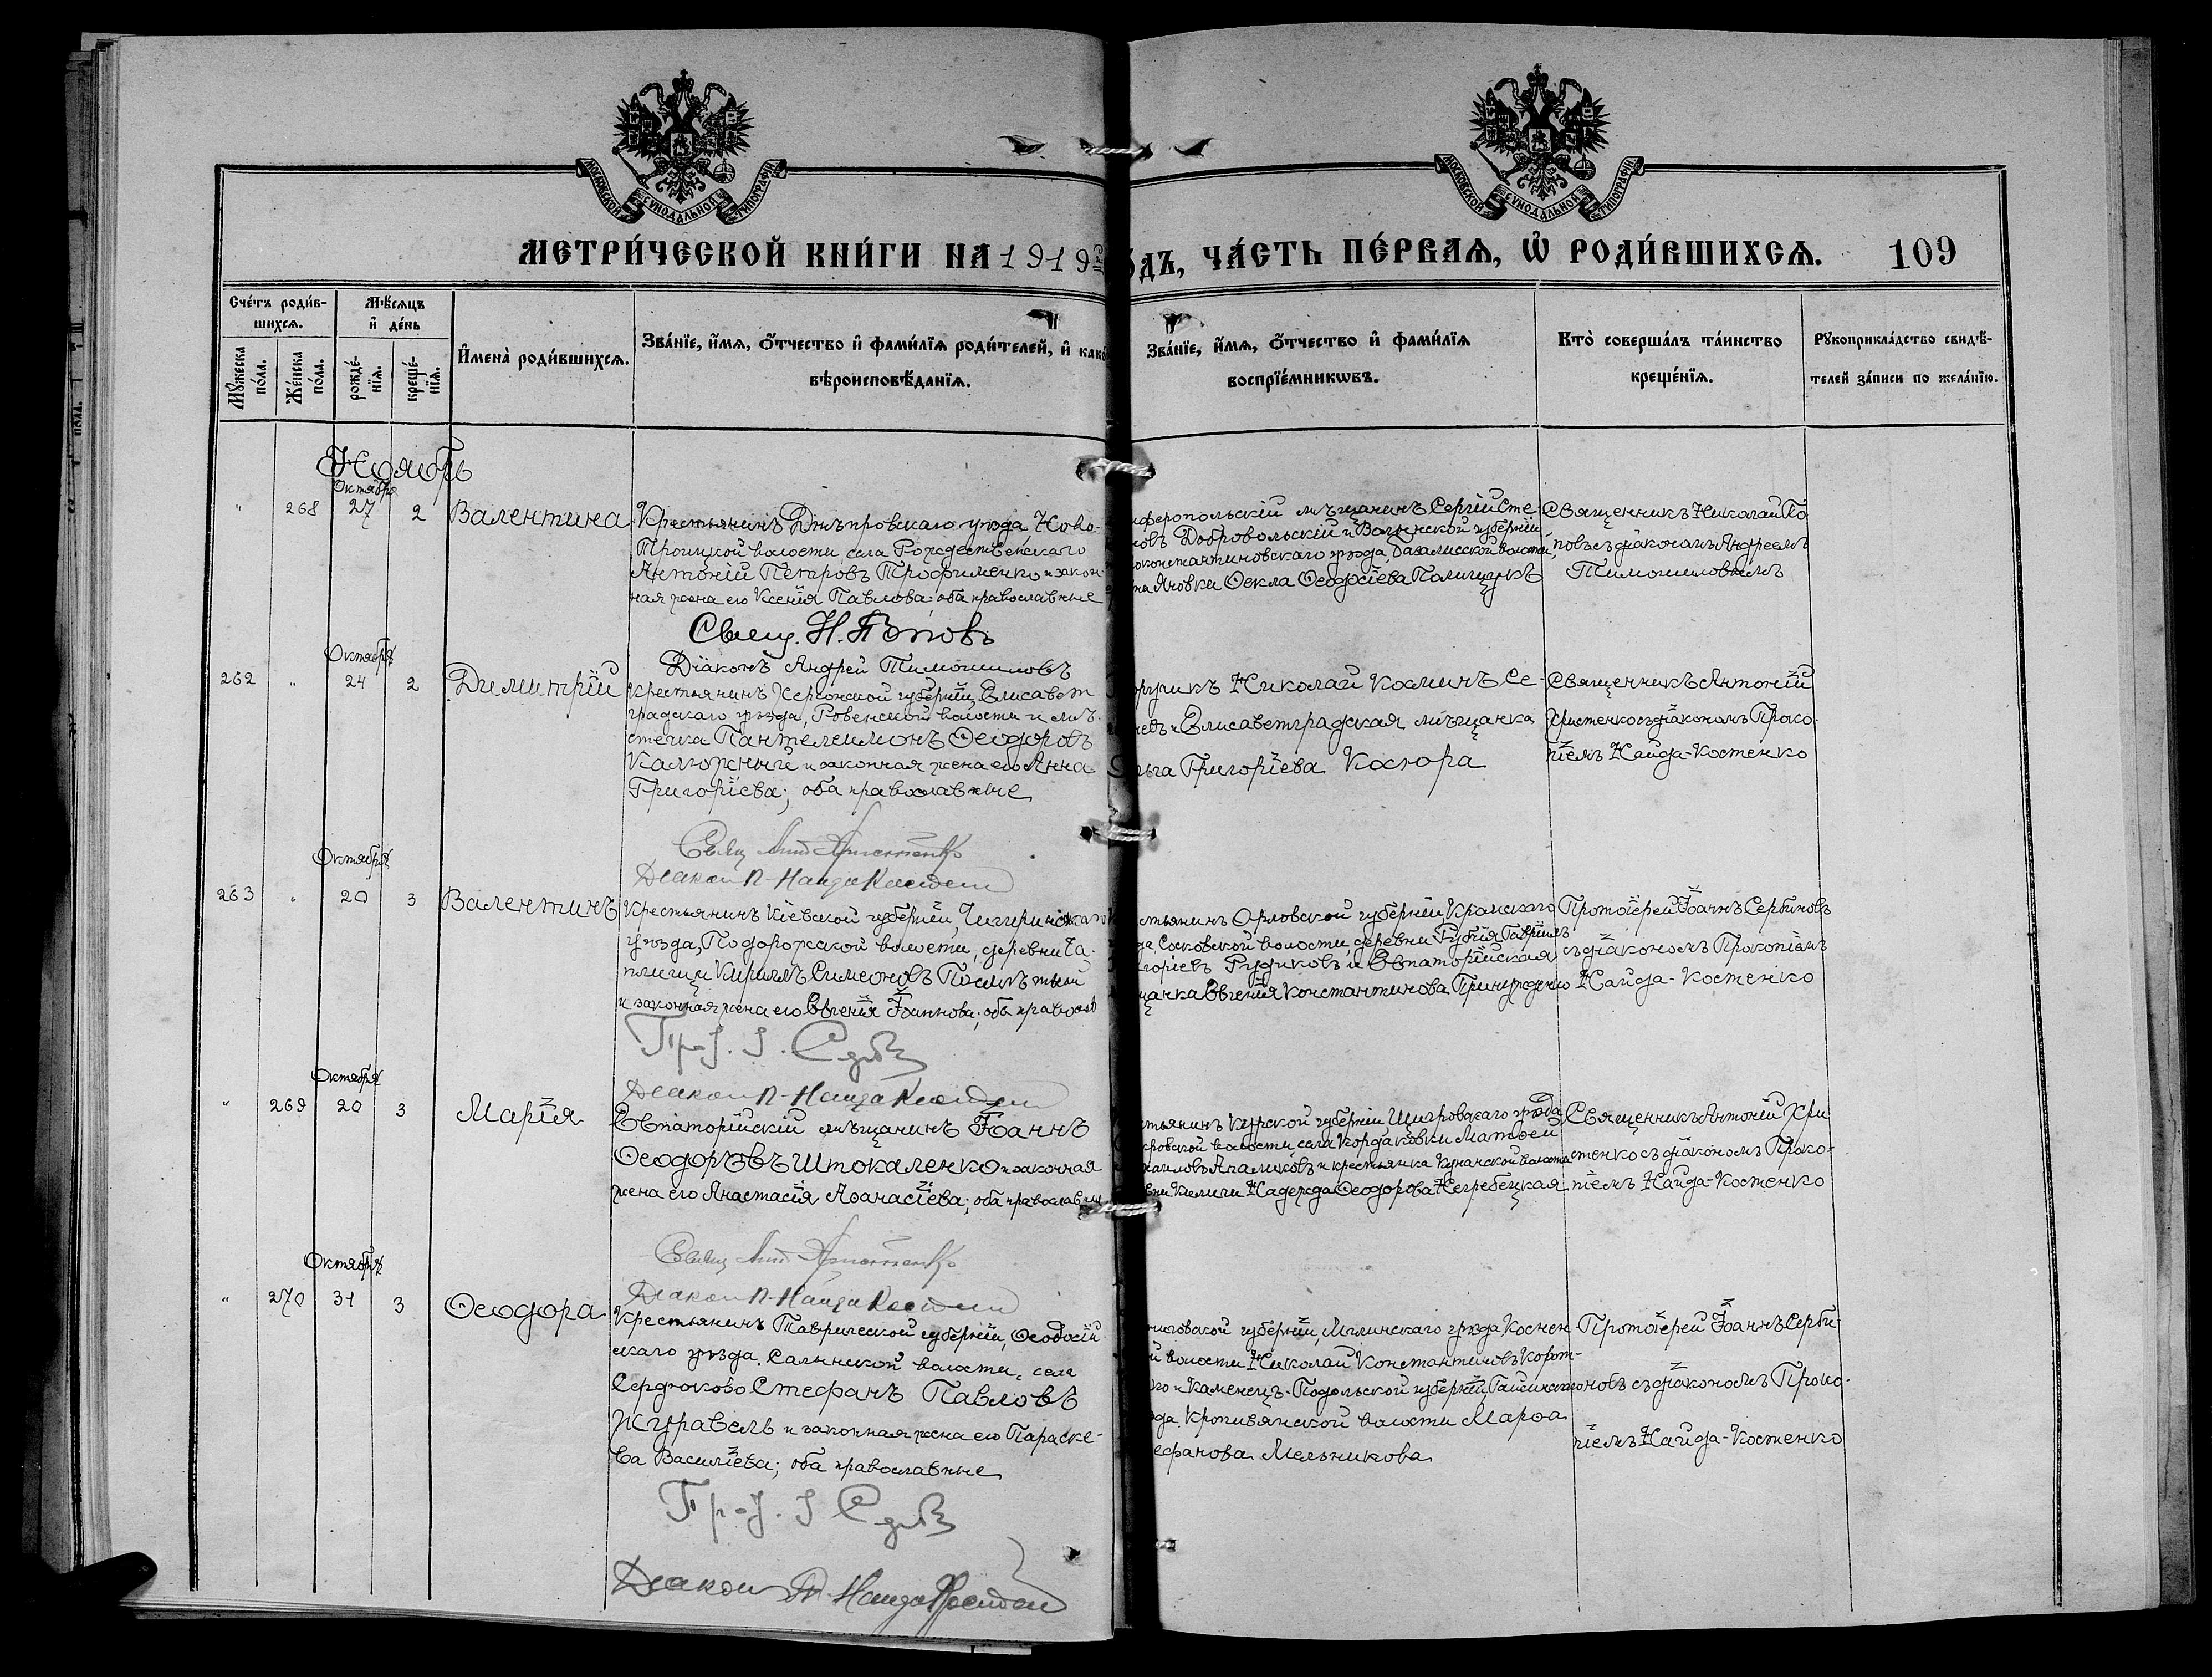 МОСКОВСКОЙ СУНОДАЛЬНОЙ ТИПОГРАФІИ
МОСКОВСКОЙ СУНОДАЛЬНОЙ ТИПОГРАФІИ
МЕТРИ́ЧЕСКОЙ КНИ́ГИ НА 1919
ДЪ, ЧА́СТЬ ПЕ́РВАѦ, Ѡ҆ РОДИ́ВШИХСѦ. 109
Сче́тъ роди́в-
шихсѧ.
Мꙋ́жеска по́ла.
Же́нска по́ла.
Мѣ́сѧцъ
и҆ де́нь
рожде́-
нїѧ.
креще́-
нїѧ.
И҆мена̀ роди́вшихсѧ.
Зва́нїе, и҆́мѧ, ѻ҆́тчество и҆ фами́лїѧ роди́телей, и҆ како
вѣроисповѣ́данїѧ.
Зва́нїе, и҆́мѧ, ѻ҆́тчество и҆ фами́лїѧ
воспрїе́мникѡвъ.
Кто̀ соверша́лъ та́инство
креще́нїѧ.
Рꙋкоприкла́дство свидѣ́-
телей за́писи по жела́нїю.
Ноябрь
Октября
" 268 27 2 Валентина
Крестьянинъ Днѣпровскаго уѣзда, Ново-
Троицкой волости села Рождественскаго
Антоній Петровъ Трофименко и закон-
ная жена его Ксенія Павлова; оба православные
Свящ. Н. Поповъ
Діаконъ Андрей Тимошиловъ
феропольскій мѣщанинъ Сергій Сте-
новъ Добровольскій и Волынской губерніи
оконстантиновскаго уѣзда, волости,
Яновки Ѳекла Ѳеодосіева Полищукъ
Священникъ Николай По
повъ съ діакономъ Андреемъ
Тимошиловымъ
Октября
262 " 24 2 Димитрій
Крестьянинъ Херсонской губерніи, Елисавет
градскаго уѣзда, Ровенской волости и мѣ-
стечка Пантелеимонъ Ѳеодоровъ
Калюжный и законная жена его Анна
Григоріева; оба православные
Свящ Ант Христенко
Діакон П. Найда Костенко
оручикъ Николай Косминъ Се-
и Елисаветградская мѣщанка
льга Григоріева Косюра
Священникъ Антоній
Христенко съ діакономъ Проко-
піемъ Найда-Костенко
Октября
263 " 20 3 Валентинъ
Крестьянинъ Кіевской губерніи, Чигиринскаго
уѣзда, Подорожской волости, деревни Ча-
плищи Кириллъ Симеоновъ
и законная жена его Евгенія Іоаннова; оба православ
Діакон П. Найда Костенко
стьянинъ Орловской губерніи, Кромскаго
да, Сосковской волости, деревни Гавріилъ
горіевъ Рудиковъ и Евпаторійская
щанка Евгенія Константинова
Протоіерей Іоаннъ Сербиновъ
съ діакономъ Прокопіемъ
Найда-Костенко
Октября
" 269 20 3 Марія
Евпаторійскій мѣщанинъ Іоаннъ
Ѳеодоровъ Штокаленко и законная
жена его Анастасія Аѳанасіева; оба православные
Свящ Ант Христенко
Діакон П. Найда Костенко
стьянинъ Курской губерніи Щигровскаго уѣзда
кровской волости села Кордаковки Матѳей
хаиловъ Апаликовъ и крестьянка волости
Надежда Ѳеодорова Негребецкая
Священникъ Антоній Хри
стенко съ діакономъ Проко-
піемъ Найда-Костенко
Октября
" 270 31 3 Ѳеодора
Крестьянинъ Таврической губерніи, Ѳеодосій
скаго уѣзда, Салынской волости, села
Сердюково Стефанъ Павловъ
Журавель и законная жена его Параске-
ва Василіева; оба православные
Діакон П. Найда Костенко
ниговской губерніи, Мглинскаго уѣзда,
й волости Николай Константиновъ Корот-
го и Каменецъ-Подольской губерніи, Гайсинскаго
да Кропивянской волости Марѳа
ефанова Мельникова
Протоіерей Іоаннъ Серби-
новъ съ діакономъ Проко-
піемъ Найда-Костенко